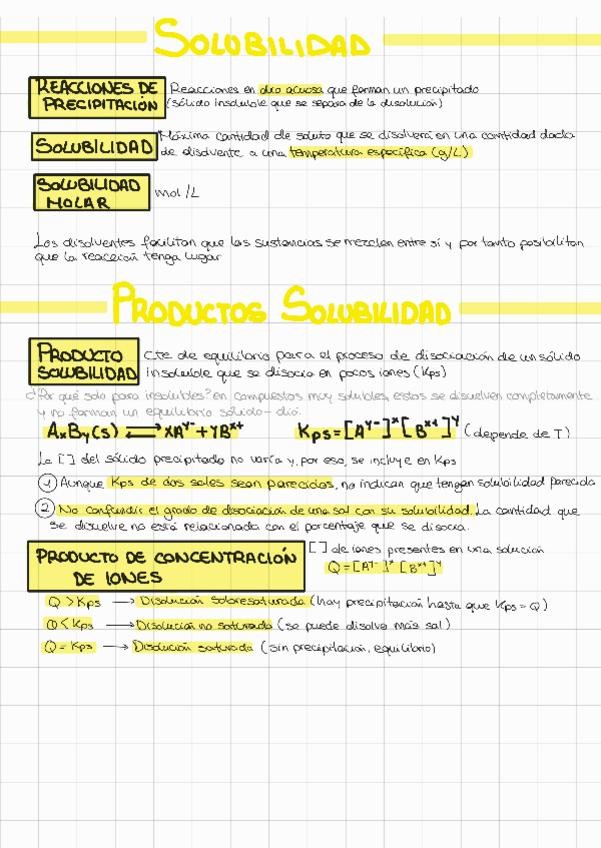 SOLUBILIDAD
REACCIONES DE PRECIPITACIÓN
Reacciones en dio acuosa que forman un precipitado
(sólido insoluble que se separa de la disolución)
SOLUBILIDAD
Máxima cantidad de soluto que se disolverá en una cantidad dada
de disolvente a una temperatura específica (g/L)
SOLUBILIDAD MOLAR
mol/L
Los disolventes facilitan que las sustancias se mezclen entre sí y por tanto posibilitan
que la reacción tenga lugar
PRODUCTOS SOLUBILIDAD
PRODUCTO SOLUBILIDAD
Cte de equilibrio para el proceso de disociación de un sólido
insoluble que se disocia en pocos iones (Kps)
¿Por qué solo para insolubles? en compuestos muy solubles, estos se disuelven completamente
y no forman un equilibrio sólido-dio.
AxBy(s) ⇌ XA^Y- + YB^X+ Kps=[A^Y-]^X [B^X+]^Y (depende de T)
La [ ] del sólido precipitado no varía y, por eso, se incluye en Kps
① Aunque Kps de dos sales sean parecidos, no indican que tengan solubilidad parecida
② No confundir el grado de disociación de una sal con su solubilidad. La cantidad que
se disuelve no está relacionada con el porcentaje que se disocia.
PRODUCTO DE CONCENTRACIÓN
DE IONES
[ ] de iones presentes en una solución
Q=[A^Y-]^X [B^X+]^Y
Q > Kps → Disolución sobresaturada (hay precipitación hasta que Kps = Q)
Q < Kps → Disolución no saturada (se puede disolver más sal)
Q = Kps → Disolución saturada (sin precipitación, equilibrio)